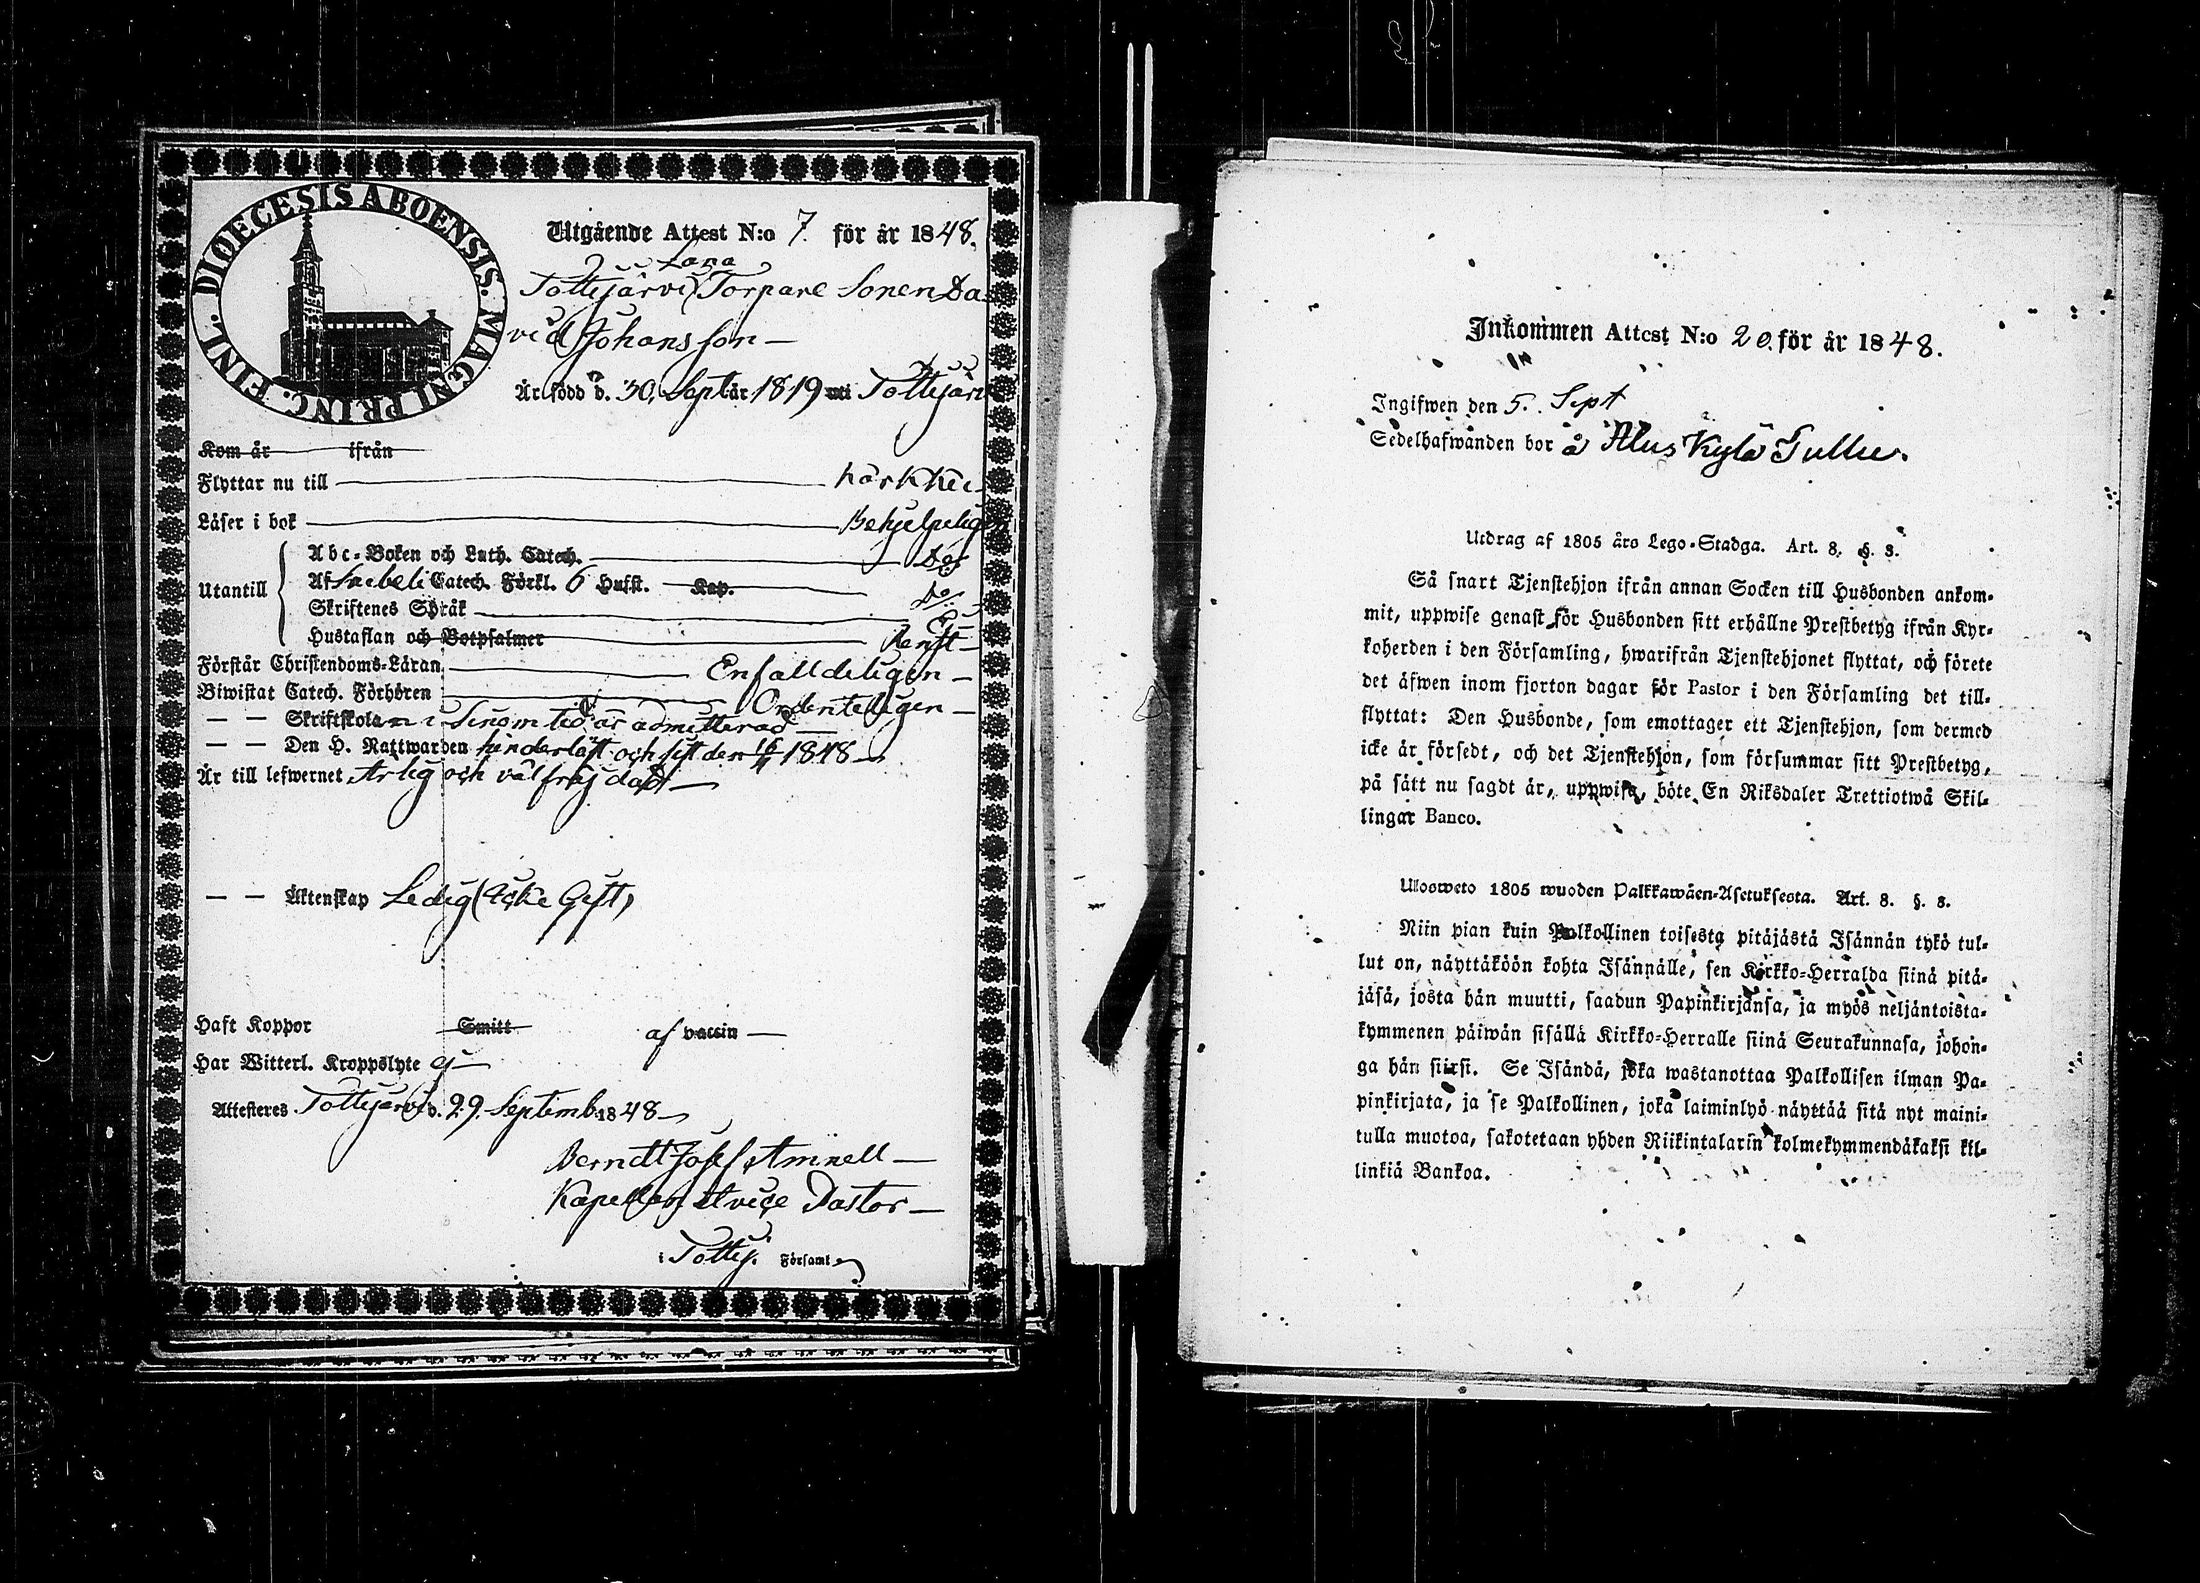 DIOECESIS ABOENSIS. MAGNI PRINC. FINL.
Utgående Attest N:o 7. för år 1848.
Lana
Tottijärvi Torpare Sonen Da-
vid Johansson —
Är född d. 30. Sept år 1819 uti Tottijärvi
Kom år ifrån
Flyttar nu till Karkku
Läser i bok Behjelpeligen
Utantill
Abc-Boken och Luth. Catech. Do
Af Svebeli Catech. Förkl. 6 Hufst. Kap. Do
Skriftenes Språk Ej
Hustaflan och Botpsalmer Renst —
Förstår Christendoms-Läran Enfalldeligen —
Biwistat Catech. Förhören Ordenteligen —
— — Skriftskolan i Sinom tid är admitterad —
— — Den H. Nattwarden hinderlöst och sist den 1848 —
Är till lefwernet Ärlig och väl frejdad —
— — Äktenskap Ledig (Icke Gift)
Haft Koppor Smitt af vaccin —
Har Witterl. Kroppslyte ej —
Attesteres Tottijärvi d. 29. Septemb. 1848 —
Berndt Josef Aminell —
Kapellan & vice Pastor —
i Tottij. Församl.
Inkommen Attest N:o 20. för år 1848.
Ingifwen den 5. Sept
Sedelhafwanden bor å Aluskylä Tulle.
Utdrag af 1805 års Lego-Stadga. Art. 8. §. 8.
Så snart Tjenstehjon ifrån annan Socken till Husbonden ankom-
mit, uppwise genast för Husbonden sitt erhållne Prestbetyg ifrån Kyr-
koherden i den Församling, hwarifrån Tjenstehjonet flyttat, och förete
det äfwen inom fjorton dagar för Pastor i den Församling det till-
flyttat: Den Husbonde, som emottager ett Tjenstehjon, som dermed
icke är försedt, och det Tjenstehjon, som försummar sitt Prestbetyg,
på sätt nu sagdt är, uppwisa, böte En Riksdaler Trettiotwå Skil-
lingar Banco.
Ulosweto 1805 wuoden Palkkawäen-Asetuksesta. Art. 8. §. 8.
Niin pian kuin Palkollinen toisesta pitäjästä Isännän tykö tul-
lut on, näyttäköön kohta Isännälle, sen Kirkko-Herralda siinä pitä-
jäsä, josta hän muutti, saadun Papinkirjänsa, ja myös neljäntoista-
kymmenen päiwän sisällä Kirkko-Herralle siinä Seurakunnasa, johon-
ga hän siirsi. Se Isändä, joka wastanottaa Palkollisen ilman Pa-
pinkirjata, ja se Palkollinen, joka laiminlyö näyttää sitä nyt maini-
tulla muotoa, sakotetaan yhden Riikintalarin kolmekymmendäkaksi kil-
linkiä Bankoa.